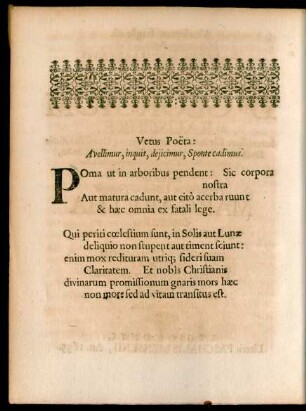 Vetus Poëta:
Avellimur, inquit, dejicimur, Sponte cadimus.
Poma ut in arboribus pendent: Sic corpora
nostra
Aut matura cadunt, aut citò acerba ruunt
& hæc omnia ex fatali lege.
Qui periti cœlestium sunt, in Solis aut Lunæ
deliquio non stupent aut timent sciunt:
enim mox redituram utriq; sideri suam
Claritatem. Et nobis Christianis
divinarum promissionum gnaris mors hæc
non mors sed ad vitam transitus est.